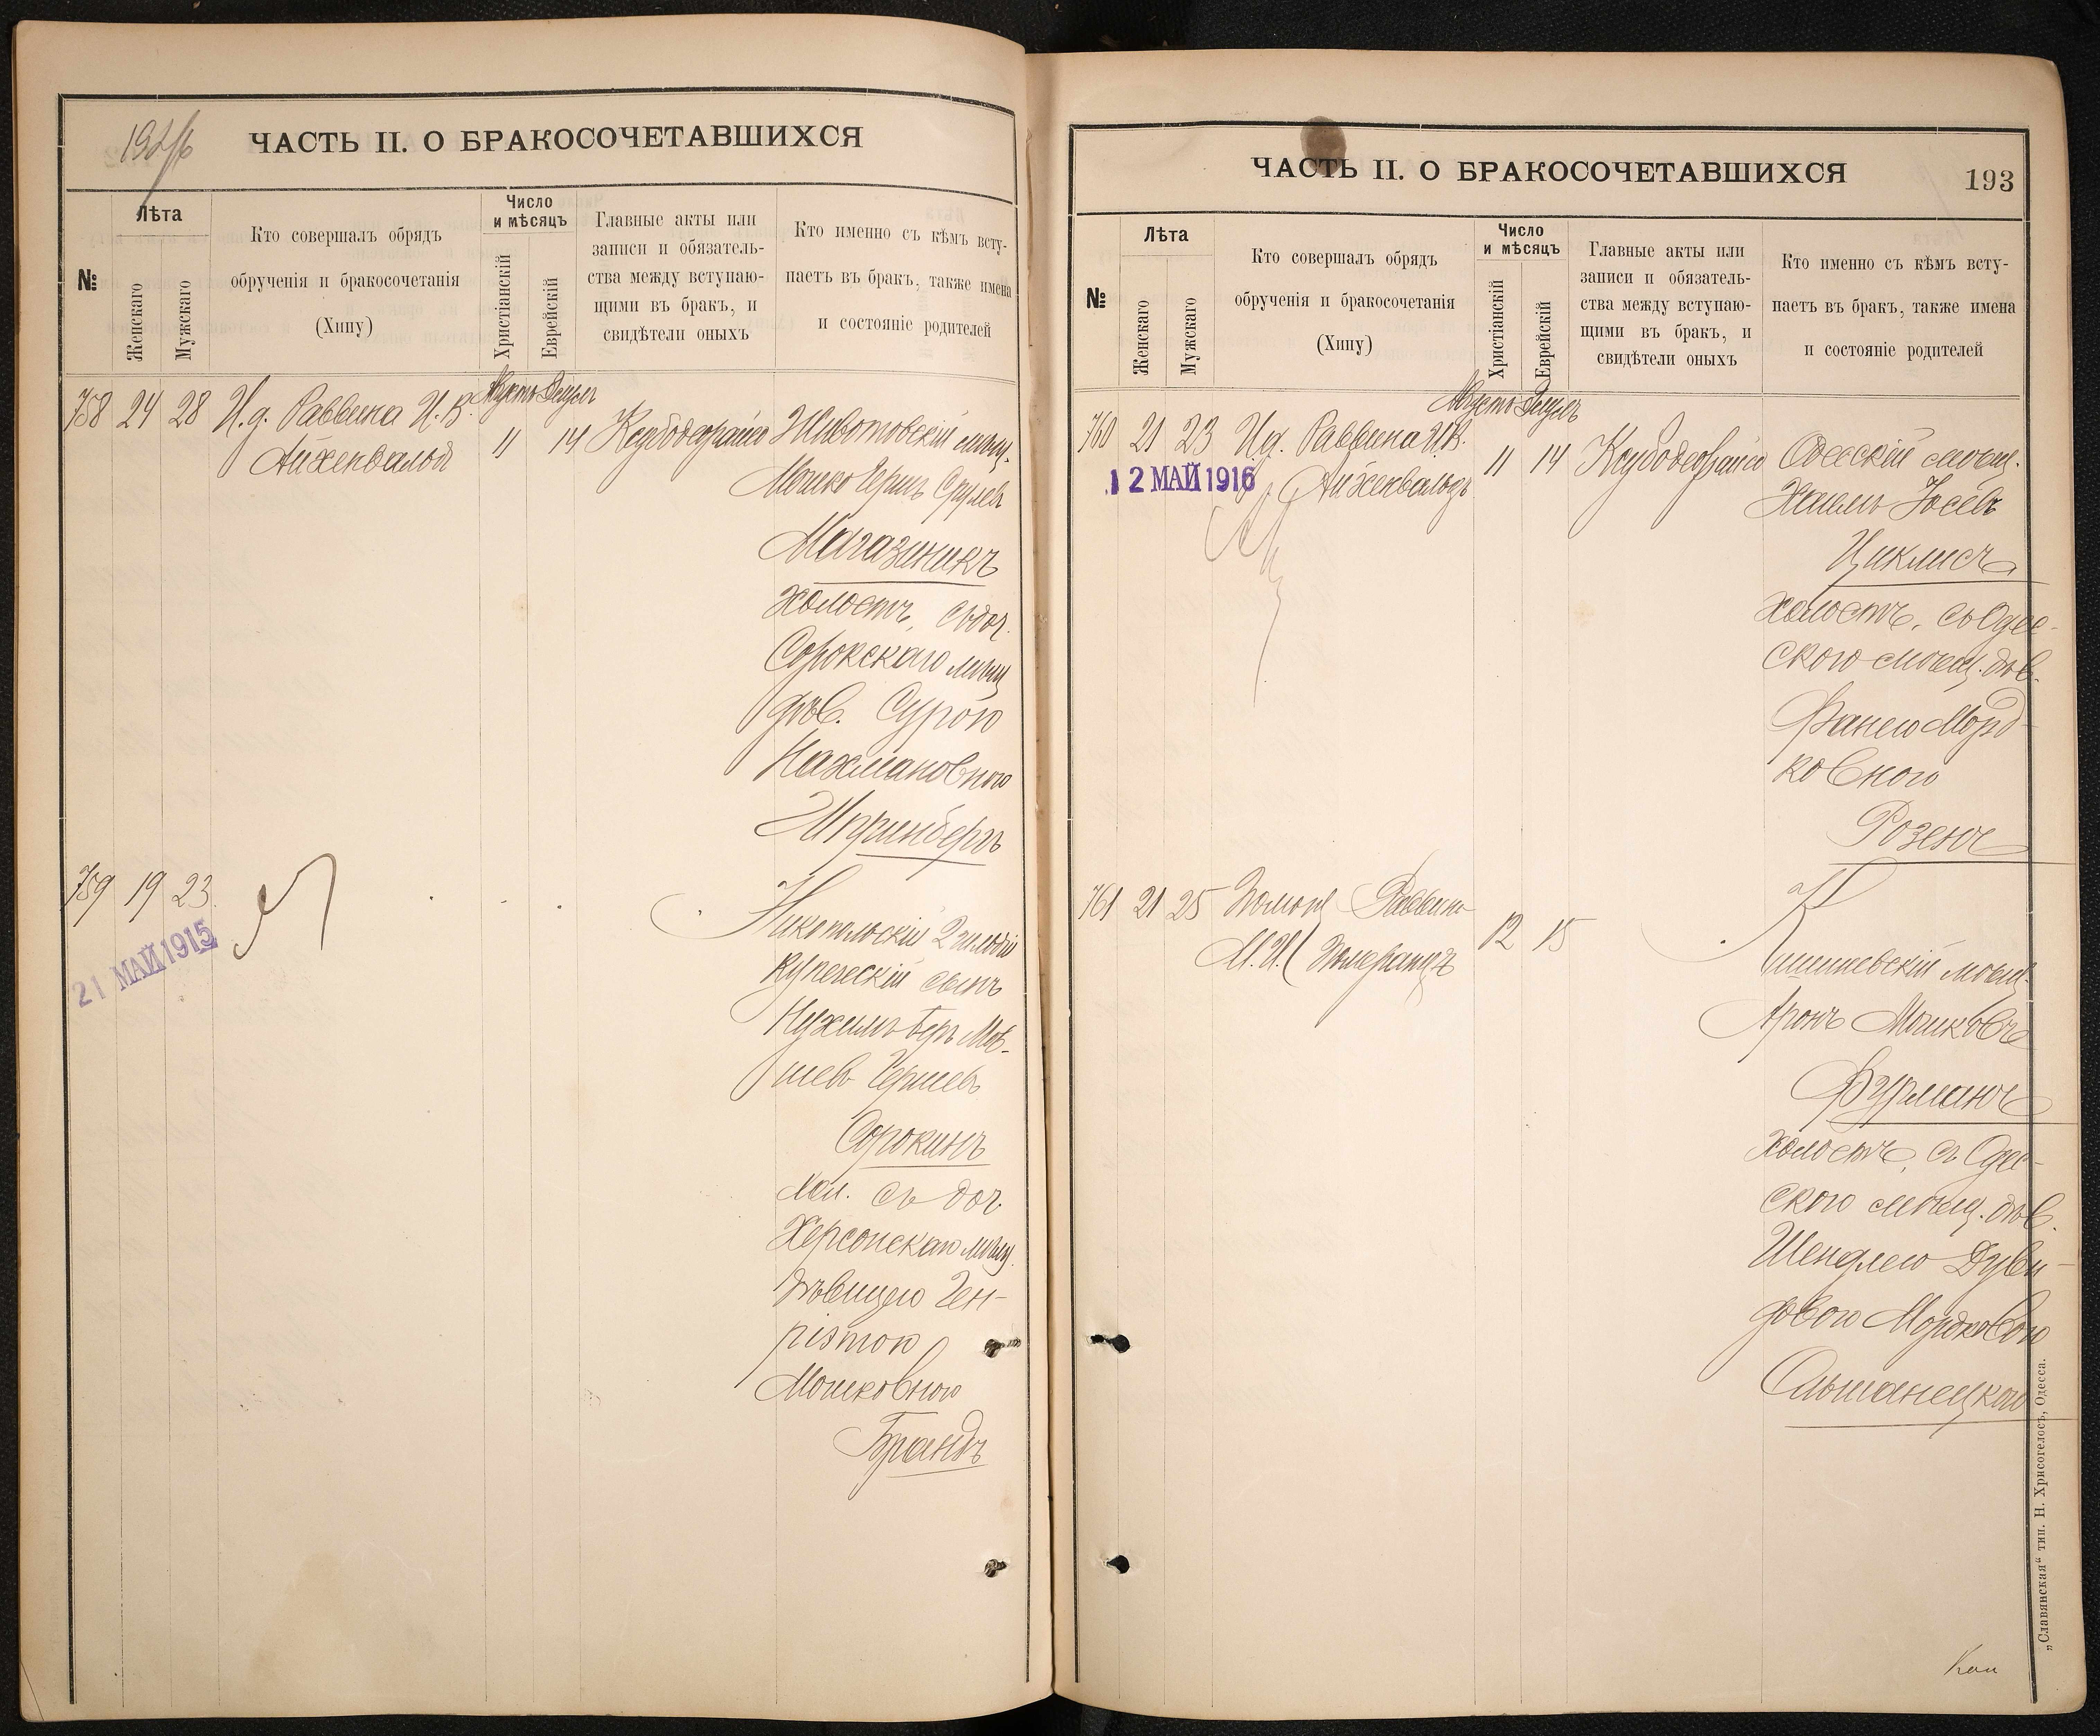 192/б
ЧАСТЬ II. О БРАКОСОЧЕТАВШИХСЯ
№
Лѣта
Женскаго
Мужскаго
Кто совершалъ обрядъ
обрученія и бракосочетанія
(Хипу)
Число
и мѣсяцъ
Христіанскій
Еврейскій
Главные акты или
записи и обязатель-
ства между вступаю-
щими въ бракъ, и
свидѣтели оныхъ
Кто именно съ кѣмъ всту-
паетъ въ бракъ, также имена
и состояніе родителей
758 24 28 И.д. Раввина И. В.
Айхенвальд
Августъ Элулъ
11 14
Животовскій мѣщ.
Мошко Герш Срулев
Магазиникъ
холостъ, съ доч.
Сорокскаго мѣщ
дѣв. Сурою
Нахмановною
Штринбергъ
759 19 23
21 МАЙ 1915
Никопольскій 2 гильдіи
купеческій сынъ
Нухимъ Беръ Мов-
шев Гершев
Сорокинъ
хол. съ доч
Херсонскаго мѣщ.
дѣвицею Ген-
ріэтою
Мошковною
Брандъ
ЧАСТЬ II. О БРАКОСОЧЕТАВШИХСЯ
193
№
Лѣта
Женскаго
Мужскаго
Кто совершалъ обрядъ
обрученія и бракосочетанія
(Хипу)
Число
и мѣсяцъ
Христіанскій
Еврейскій
Главные акты или
записи и обязатель-
ства между вступаю-
щими въ бракъ, и
свидѣтели оныхъ
Кто именно съ кѣмъ всту-
паетъ въ бракъ, также имена
и состояніе родителей
760 21 23 И.д. Раввина И.В.
Айхенвальдъ
12 МАЙ 1916
Августъ Элулъ
11 14
Одесскій мѣщ.
Хаимъ Іосев
Циклисъ
холостъ, съ Одес-
скою мѣщ. дѣв.
Фанею Морд-
ковною
Розенъ
761 21 25 Помощ Раввина
М. И. Померанцъ
12 15
Кишиневскій мѣщ.
Аронъ Мошковъ
Фурманъ
холостъ, съ Одес-
скою мѣщ. дѣв.
Шендлею Дуви-
довою Мордковою
Ольшанецкою
„Славянская“ тип. Н. Хрисогелосъ, Одесса.